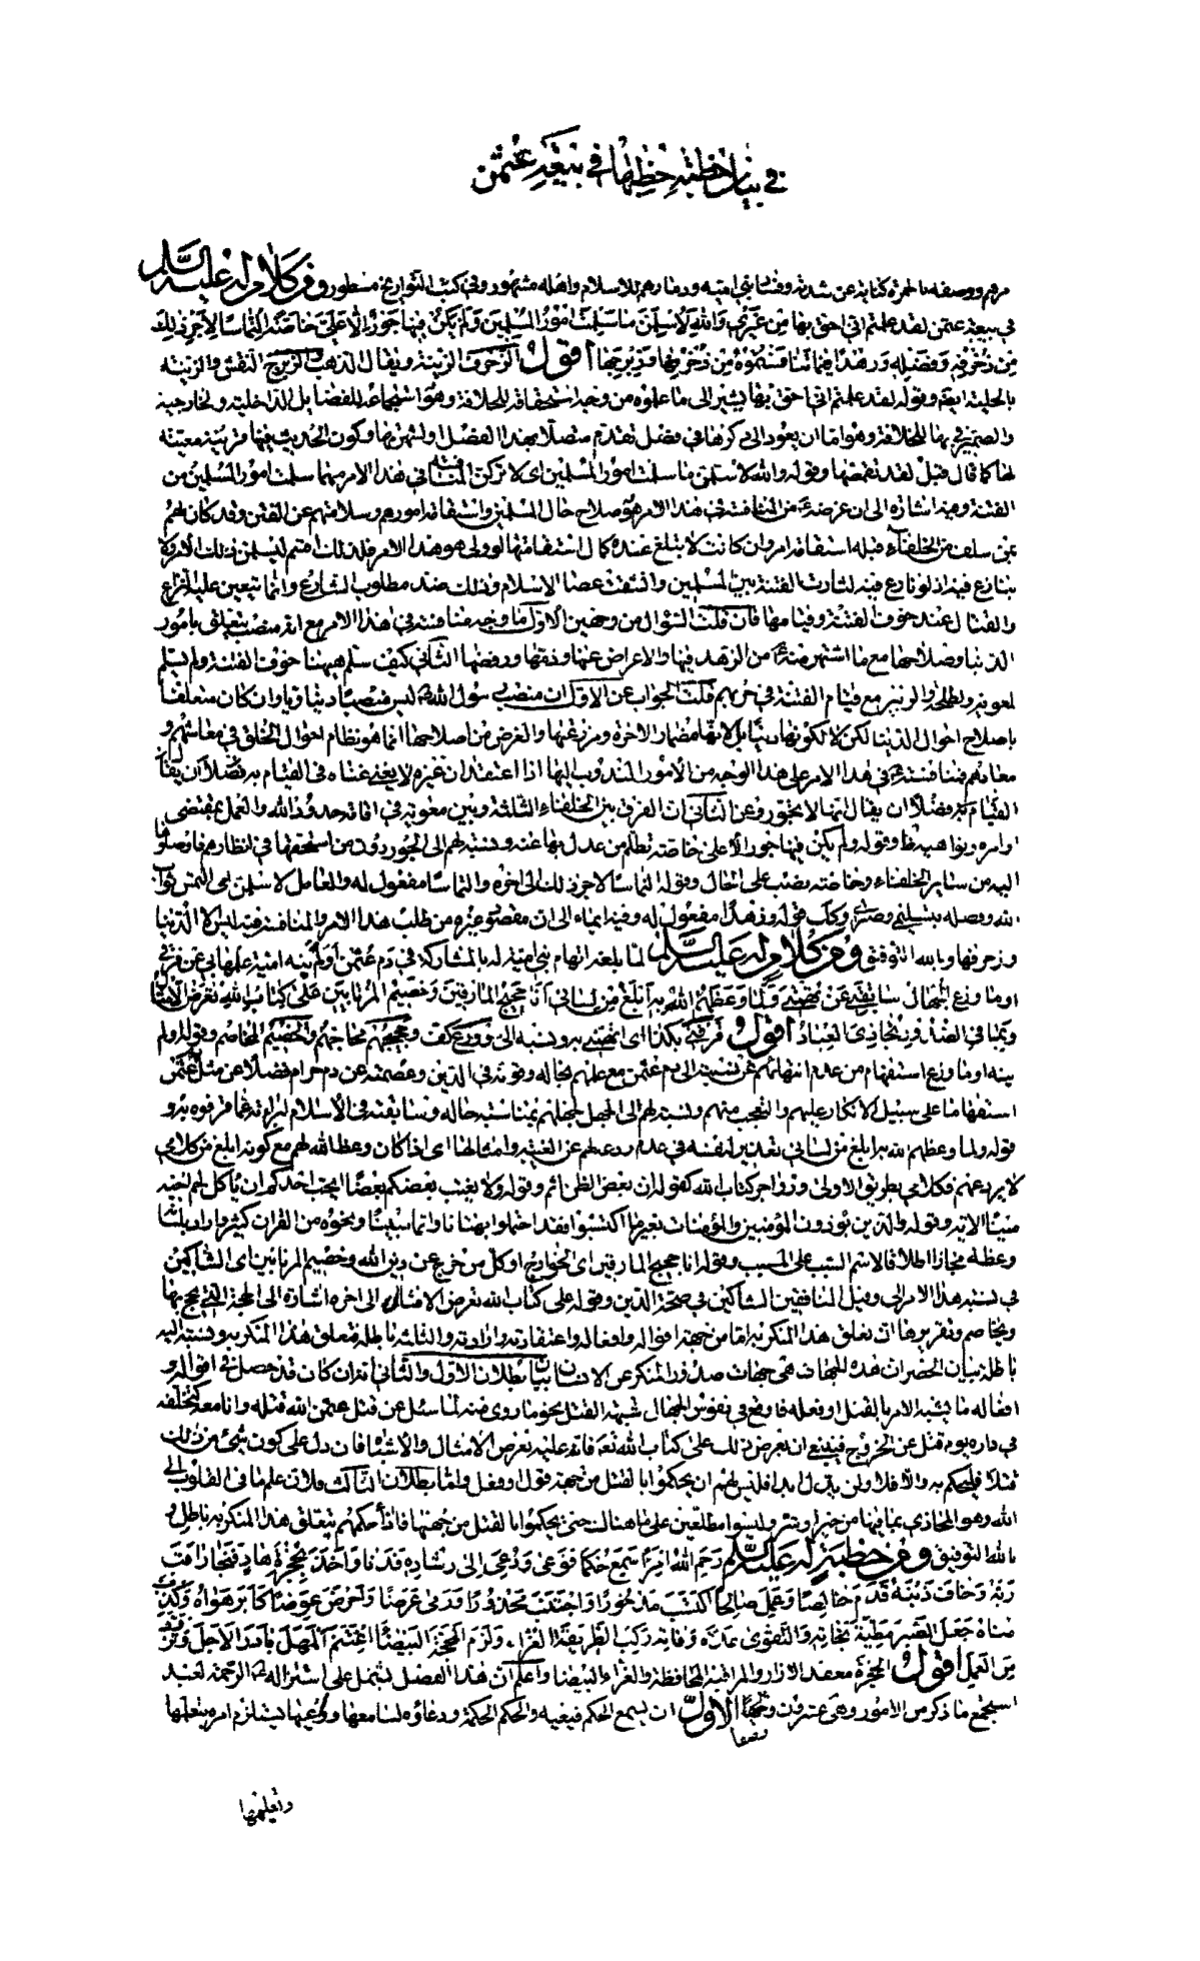 في بيان خطبه خطبها في بيعة عثمن
مرهم ووصفه بالحمرة كناية عن شدته وفتن بني امية ودمارهم للاسلام واهله مشهور وفي كتب التواريخ مسطور ومن كلام له عليه السلم
في بيعة عثمن لقد علمتم اني احق بها من غيري والله لاسلمن ما سلمت امور المسلمين ولم يكن فيها جور الا علي خاصة التماسا لاجر ذلك
من زخرفه وفضله وزهدا فيما تنافستموه من زخرفه وزبرجه اقول الزخرف الزينة ويقال الذهب والزبرج النقش والزينة
بالحلية وقوله لقد علمتم اني احق بها يشير الى ما علموه من وجه استحقاقه للخلافة وهو استجماعه للفضايل الداخلية والخارجية
والضمير في بها للخلافة وهو اما ان يعود الى ذكرها في فصل تقدم متصلا بهذا الفصل او لشهرتها وكون الحديث فيها قرينة معينة
لها كما قال قبل لقد تقمصها وقوله والله لاسلمن ما سلمت امور المسلمين اي لا تركن المنافسة في هذا الامر مهما سلمت امور المسلمين من
الفتنة وفيه اشارة الى ان غرضه من المنافسة في هذا الامر هو صلاح حال المسلمين واستقامة امورهم وسلامتهم عن الفتن وقد كان لهم
بمن سلف من الخلفاء قبله استقامة امر وان كانت لا تبلغ عنده كمال استقامتها لو ولي هو هذا الامر فلذلك اقسم ليسلمن ذلك الامر ولا
ينازع فيه اذ لو نازع فيه لثارت الفتنة بين المسلمين وانشقت عصا الاسلام وذلك ضد مطلوب الشارع وانما يتعين عليه النزاع
والقتال عند خوف الفتنة وقيامها فان قلت السؤال من وجهين الاول ما وجه منافسته في هذا الامر مع انه منصب يتعلق بامور
الدنيا وصلاحها مع ما اشتهر منه من الزهد فيها والاعراض عنها وذمها ورفضها الثاني كيف سلم ههنا خوف الفتنة ولم يسلم
لمعوية ولطلحة والزبير مع قيام الفتنة في حربهم قلت الجواب عن الاول ان منصب رسول الله ليس منصبا دنياويا وان كان متعلقا
باصلاح احوال الدنيا لكن لا لكونها دنيا بل لانها مضمار الاخرة ومزرعتها والغرض من اصلاحها انما هو نظام احوال الخلق في معاشهم و
معادهم فمنافسته في هذا الامر على هذا الوجه من الامور المندوب اليها اذا اعتقد ان غيره لا يغني غناه في القيام به فضلا ان يقال
انها لا تجوز وعن الثاني ان الفرق بين الخلفاء الثلثة وبين معوية في اقامة حدود الله والعمل بمقتضى
اوامره ونواهيه وقوله ولم يكن فيها جور الا علي خاصة تظلم من عدل بها عنه ونسبة لهم الى الجور دون من استحقها في انظارهم
اليه من ساير الخلفاء وخاصة نصب على الحال وقوله التماسا لاجر ذلك الى اخره والتماسا مفعول له والعامل لاسلمن اي التمس ثواب
الله وفضله بتسليمي وصبري وكذلك قوله وزهدا مفعول له وفيه ايماء الى ان مقصود غيره من طلب هذا الامر والمنافسة فيه ليس الا الدنيا
وزخرفها وبالله التوفيق ومن كلام له عليه السلم لما بلغه اتهام بني امية له بالمشاركة في دم عثمن اولم ينه امية علمها بي عن قرفي
اوما وزع الجهال سابقتي عن تهمتي ولما وعظهم الله به ابلغ من لساني انا حجيج المارقين وخصيم المرتابين على كتاب الله تعرض الامثال
وبما في الصدور تجازى العباد اقول قرفني بكذا اي اتهمني به ونسبه الي ووزع كف وحجيجهم محاجهم والخصيم المخاصم وقوله اولم
ينه اوما وزع استفهام من عدم انتهائهم عن نسبته الى دم عثمن مع علمهم بحاله وقوته في الدين وعصمته عن دم حرام فضلا عن مثل دم عثمن
استفهاما على سبيل الانكار عليهم والتعجب منهم ونسبة لهم الى الجهل لجهلهم بمناسبة حاله وسابقته في الاسلام لبراءته عما قرفوه به و
قوله ولما وعظهم الله به ابلغ من لساني تعذير لنفسه في عدم ردعهم عن الغيبة وامثالها اي اذا كان وعظ الله لهم مع كونه ابلغ من كلامي
لا يردعهم فكلامي بطريق الاولى وزواجر كتاب الله كقوله ان بعض الظن اثم وقوله ولا يغتب بعضكم بعضا ايحب احدكم ان ياكل لحم اخيه
ميتا الاية وقوله والذين يؤذون المؤمنين والمؤمنات بغير ما اكتسبوا فقد احتملوا بهتانا واثما مبينا ونحوه من القران كثير واراد بلسانه
وعظه مجازا اطلاقا لاسم السبب على المسبب وقوله انا حجيج المارقين اي الخوارج او كل من خرج عن دين الله وخصيم المرتابين اي الشاكين
في نسبة هذا الامر الي وقيل المنافقين الشاكين في صحة الدين وقوله على كتاب الله تعرض الامثال الى اخره اشارة الى الحجة التي يحج بها
ويخاصم وتقريرها ان تعلق هذا المنكر به اما من جهة اقواله وافعاله واعتقاداته وارادته والثلثة باطلة فتعلق هذا المنكر به ونسبته اليه
باطلة بيان الحصر ان هذه الجهات هي جهات صدور المنكر عن الانسان بيان بطلان الاول والثاني انه ان كان قد حصل في اقواله و
افعاله ما يشبه الامر بالقتل او فعله فاوقع في نفوس الجهال شبهة القتل نحو ما روي منه لما سئل عن قتل عثمن الله قتله وانا معه وكتخلفه
في داره يوم قتل عن الخروج فينبغي ان يعرض ذلك على كتاب الله تعالى فانه عليه تعرض الامثال والاشباه فان دل على كون شيء من ذلك
قتلا فليحكم به والا فلا ولن يدل ابدا فليس لهم ان يحكموا بالقتل من جهة قول او فعل واما بطلان الثالث فلان علم ما في القلوب الى
الله وهو المجازي بما فيها من خير او شر وليسوا مطلعين على ما هناك حتى يحكموا بالقتل من جهتها فاذا حكمهم بتعلق هذا المنكر به باطل و
بالله التوفيق ومن خطبة له عليه السلم رحم الله امرءا سمع حكما فوعى ودعي الى رشاد فدنا واخذ بحجزة هاد فنجا راقب
ربه وخاف ذنبه قدم خالصا وعمل صالحا اكتسب مذخورا واجتنب محذورا ورمى غرضا واحرز عوضا كابر هواه وكذب
مناه جعل الصبر مطية نجاته والتقوى عدة وفاته ركب الطريقة الغراء ولزم المحجة البيضاء اغتنم المهل وبادر الاجل وتزود
من العمل اقول الحجزة معقد الازار والمراقبة المحافظة والغراء والبيضاء واعلم ان هذا الفصل يشتمل على استنزاله الرحمة لعبد
استجمع ما ذكر من الامور وهي عشرون وصفا الاول ان يسمع الحكم فيعيه والحكم الحكمة ودعاؤه لسامعها وواعيها يستلزم امره بتعلمها
وتعليمها